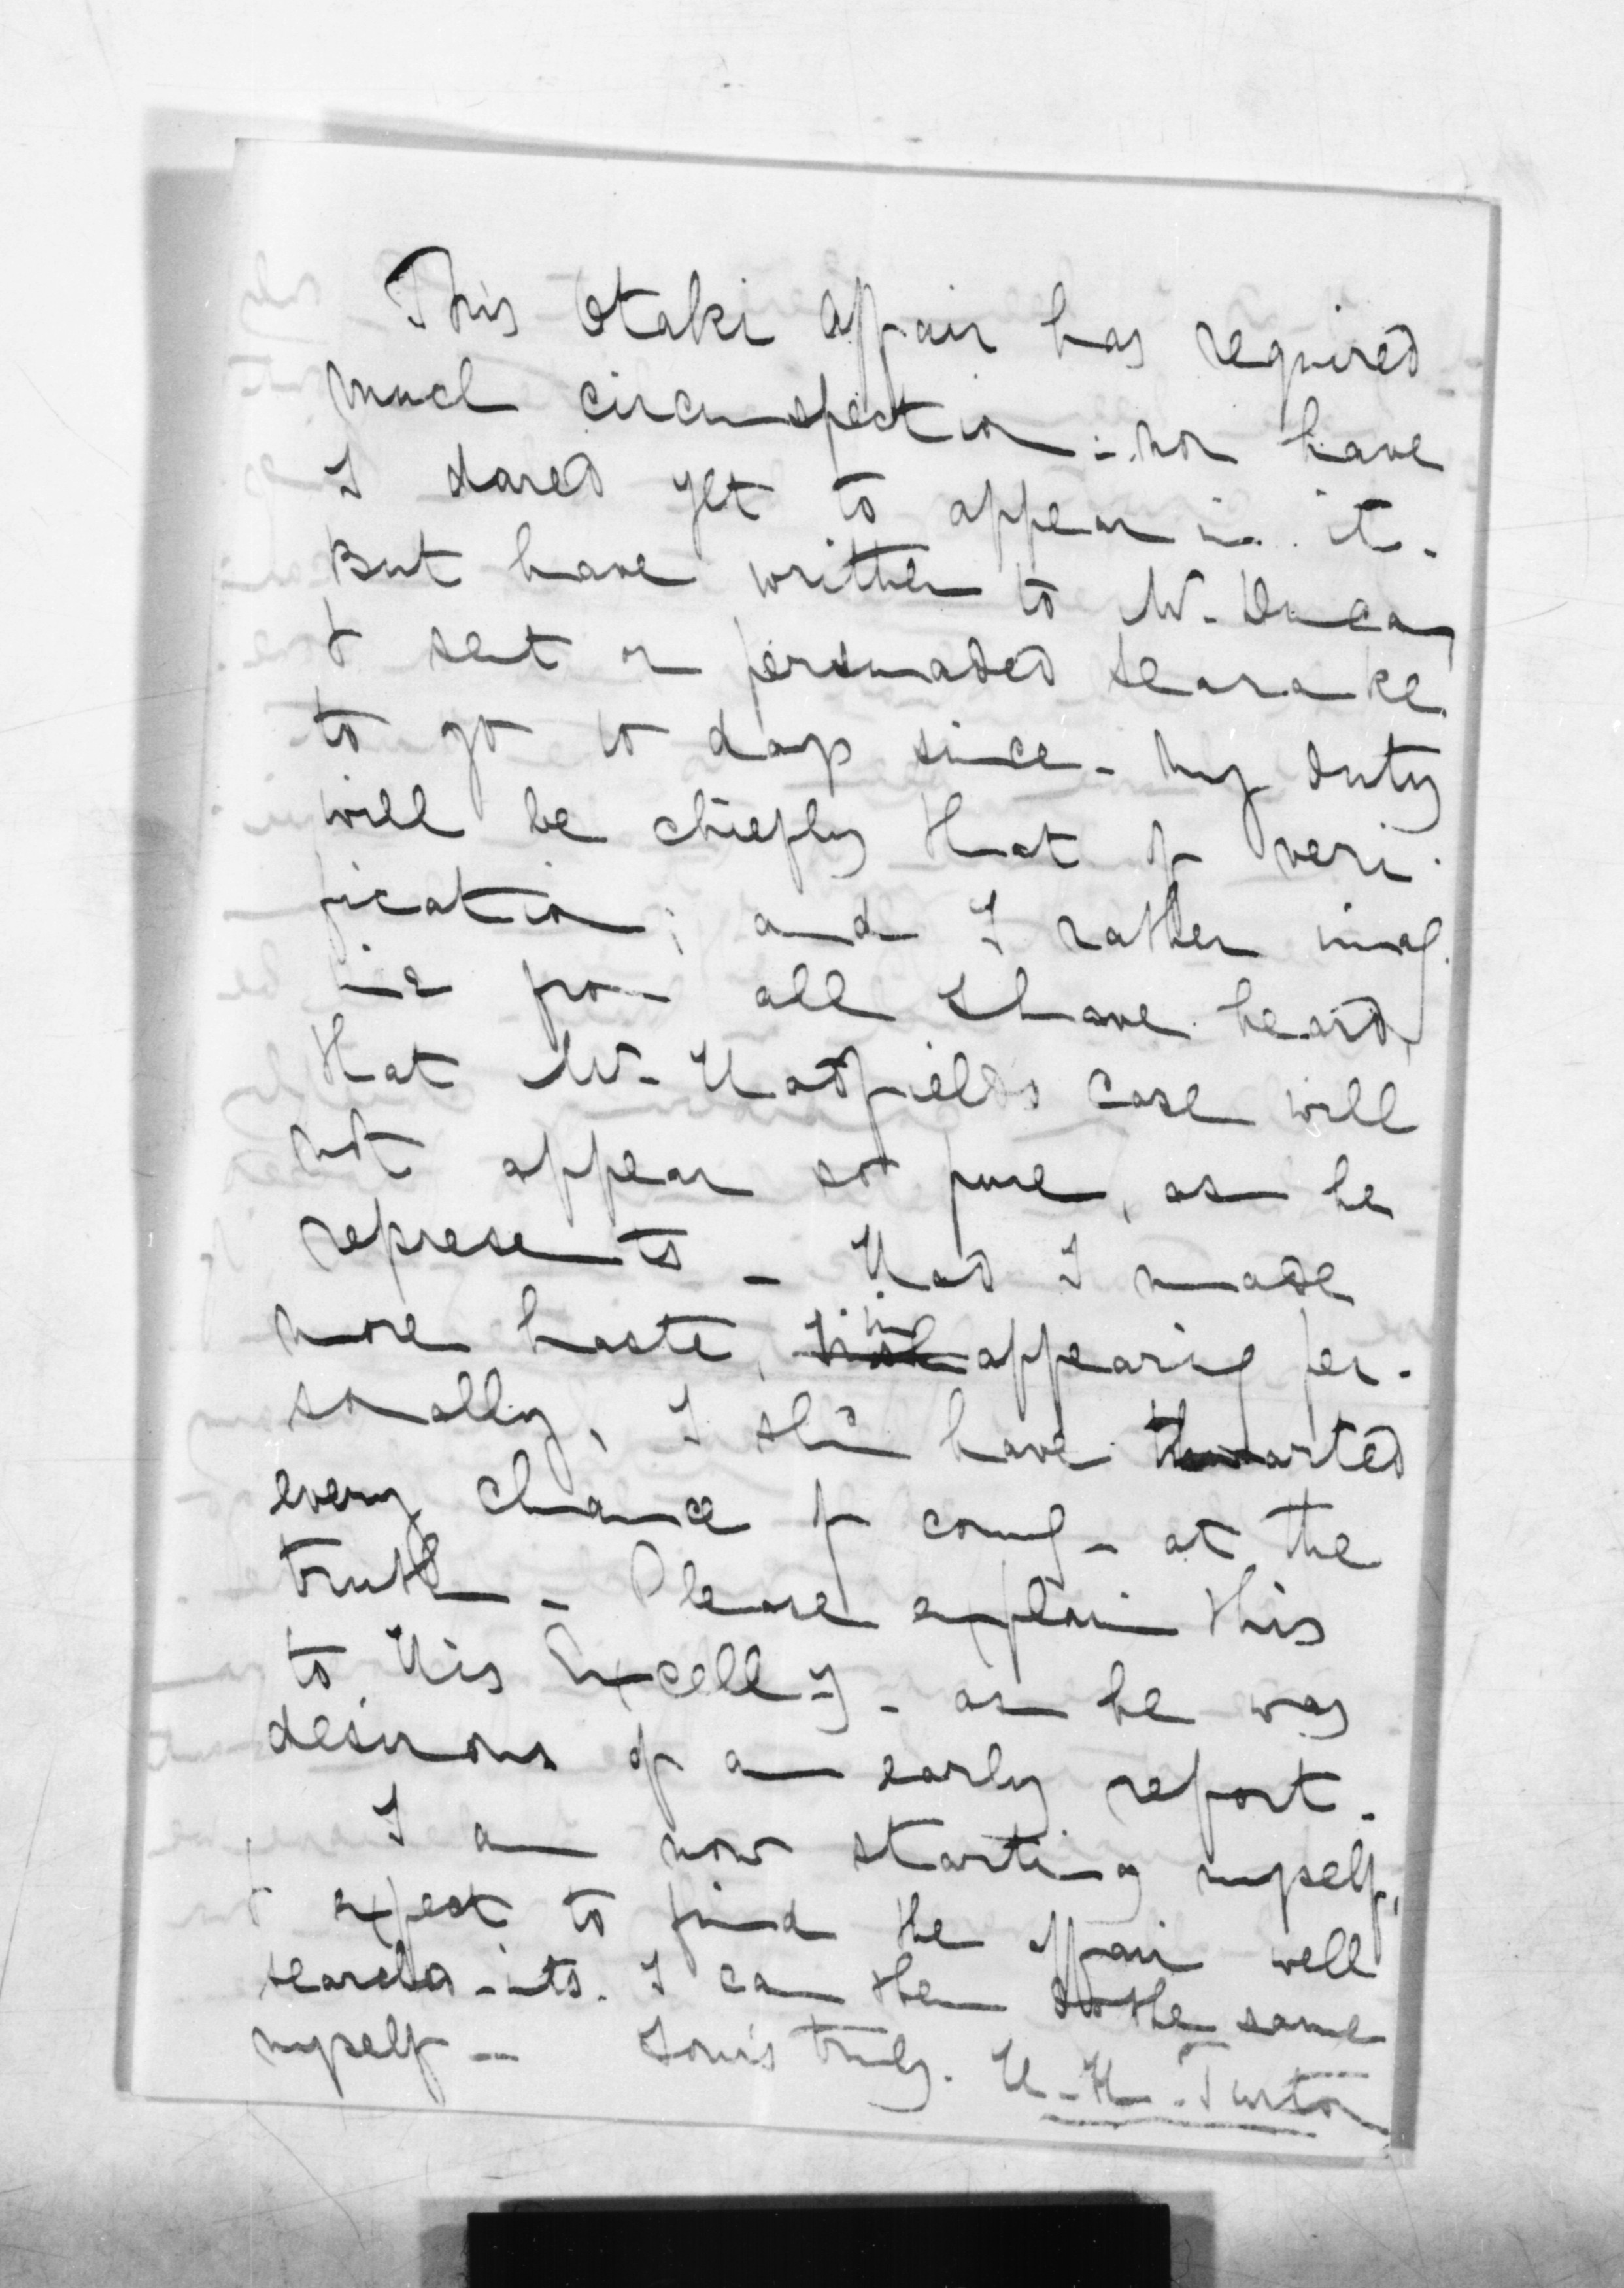 This Otaki affair has required
much circumspection: nor have
I dared yet to appear in it.
But have written to Mr. Duncan,
& sent or persuaded Searancke
to go 10 days since - my duty
will be chiefly that of veri-
fication; and I rather imag-
ine from all I have heard,
that Mr. Hadfield's case will
not appear so pure, as he
represents - Had I made
more haste, in appearing per-
sonally, I shd have thwarted
every chance of comg - at the
truth - Please explain this
to His Excelly - as he was
desirous of an early report.
I am now starting myself,
& expect to find the affair well
searched - into. I can then do the same
myself - Yours truly. H. H. Turton